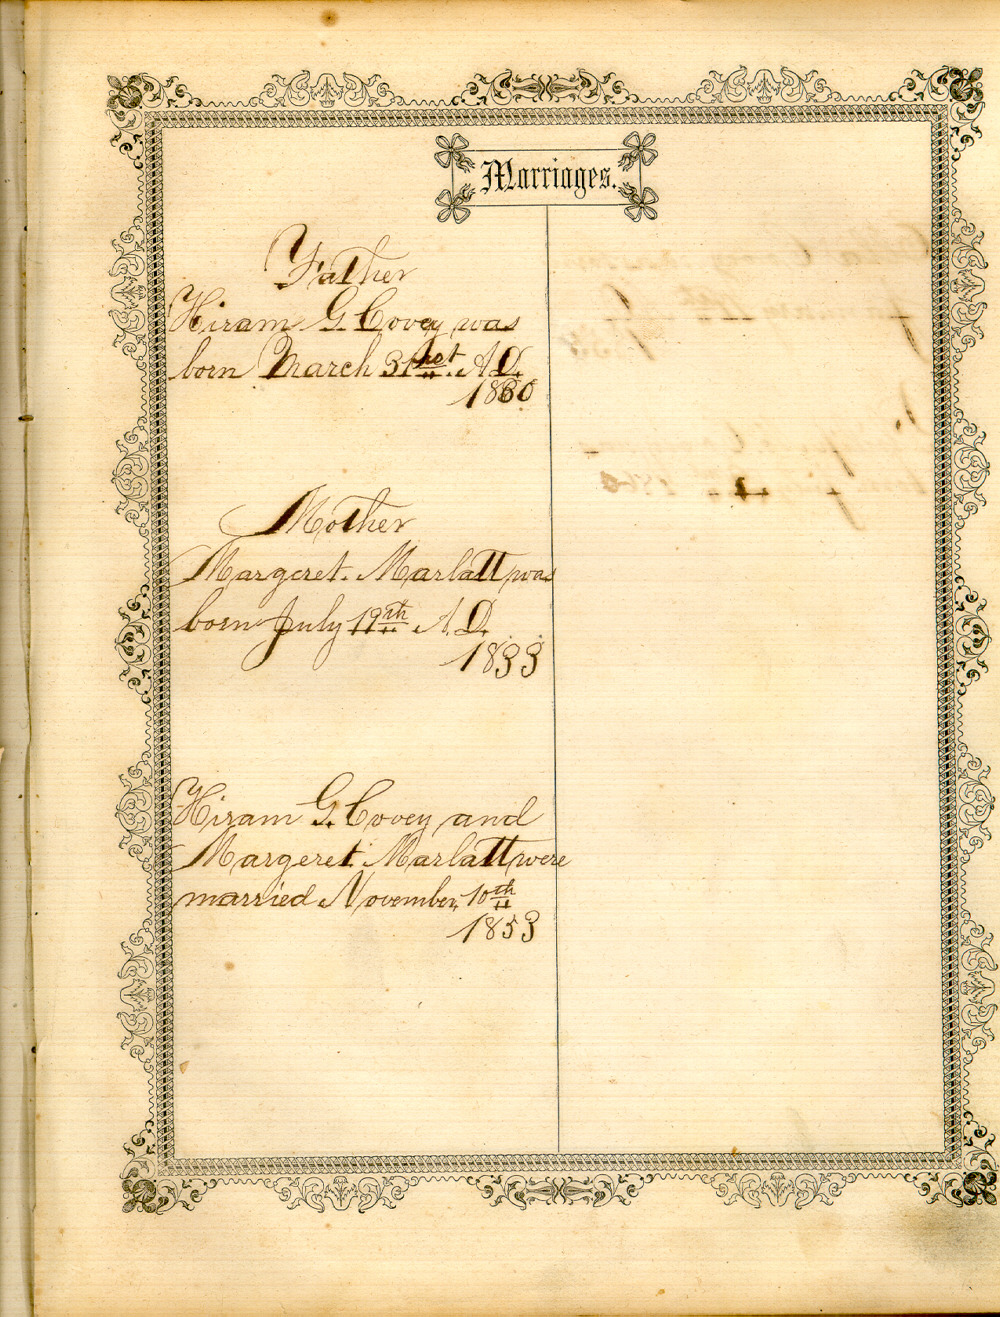 Marriages.
Father
Hiram G. Covey was
born March 31st. A.D.
1830
Mother
Margeret. Marlatt was
born July 19th A.D.
1833
Hiram G. Covey and
Margeret. Marlatt were
married November, 10th
1853